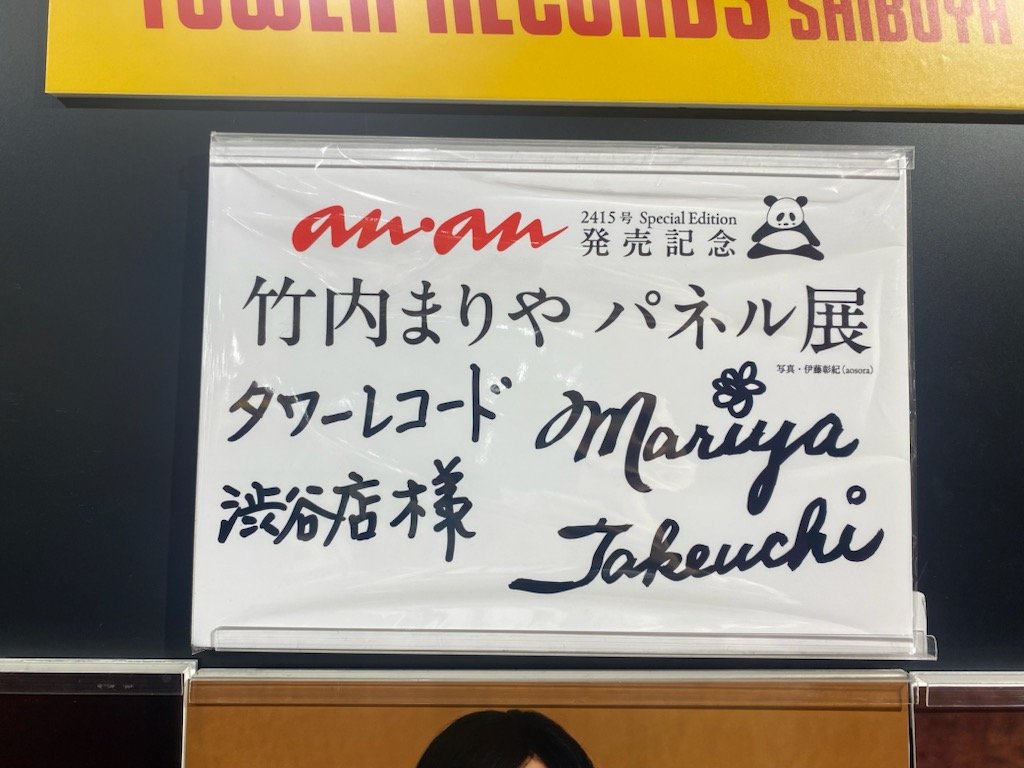 TOWER RECORDS SHIBUYA
an・an
2415号 Special Edition
発売記念
竹内まりや パネル展
写真・伊藤彰紀(aosora)
タワーレコード
渋谷店様
Mariya
Takeuchi